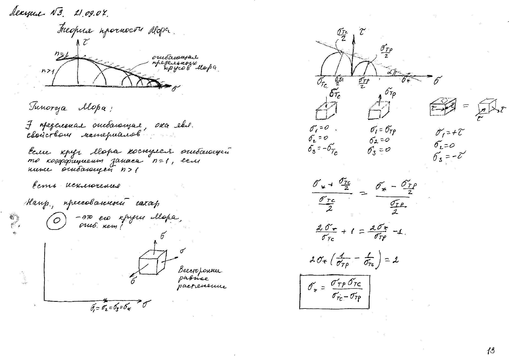 Лекция №3. 21.09.04.
Теория прочности Мора.
τ
n=1
n>1
огибающая
предельных
кругов Мора
σ
Гипотеза Мора:
∃ предельная огибающая, она явл.
свойством материалов
Если круг Мора коснулся огибающей
то коэффициент запаса n=1, если
ниже огибающей n>1
Есть исключения
Напр., прессованный сахар
- это его круги Мора,
огиб. нет!
σ
σ
σ
Всесторонне
равное
растяжение
σ₁=σ₂=σ₃=σ*
σ
σтс/2
τ
σтр/2
σтс
σтр/2
σ*
σ
σтс
σтр
=
τ
τ
σ₁=0
σ₂=0
σ₃=-σтс
σ₁=σтр
σ₂=0
σ₃=0
σ₁=+τ
σ₂=0
σ₃=-τ
(σ* + σтс/2)/(σтс/2) = (σ* - σтр/2)/(σтр/2)
2σ*/σтс + 1 = 2σ*/σтр - 1
2σ*(1/σтр - 1/σтс) = 2
σ* = σтр σтс/(σтс - σтр)
13